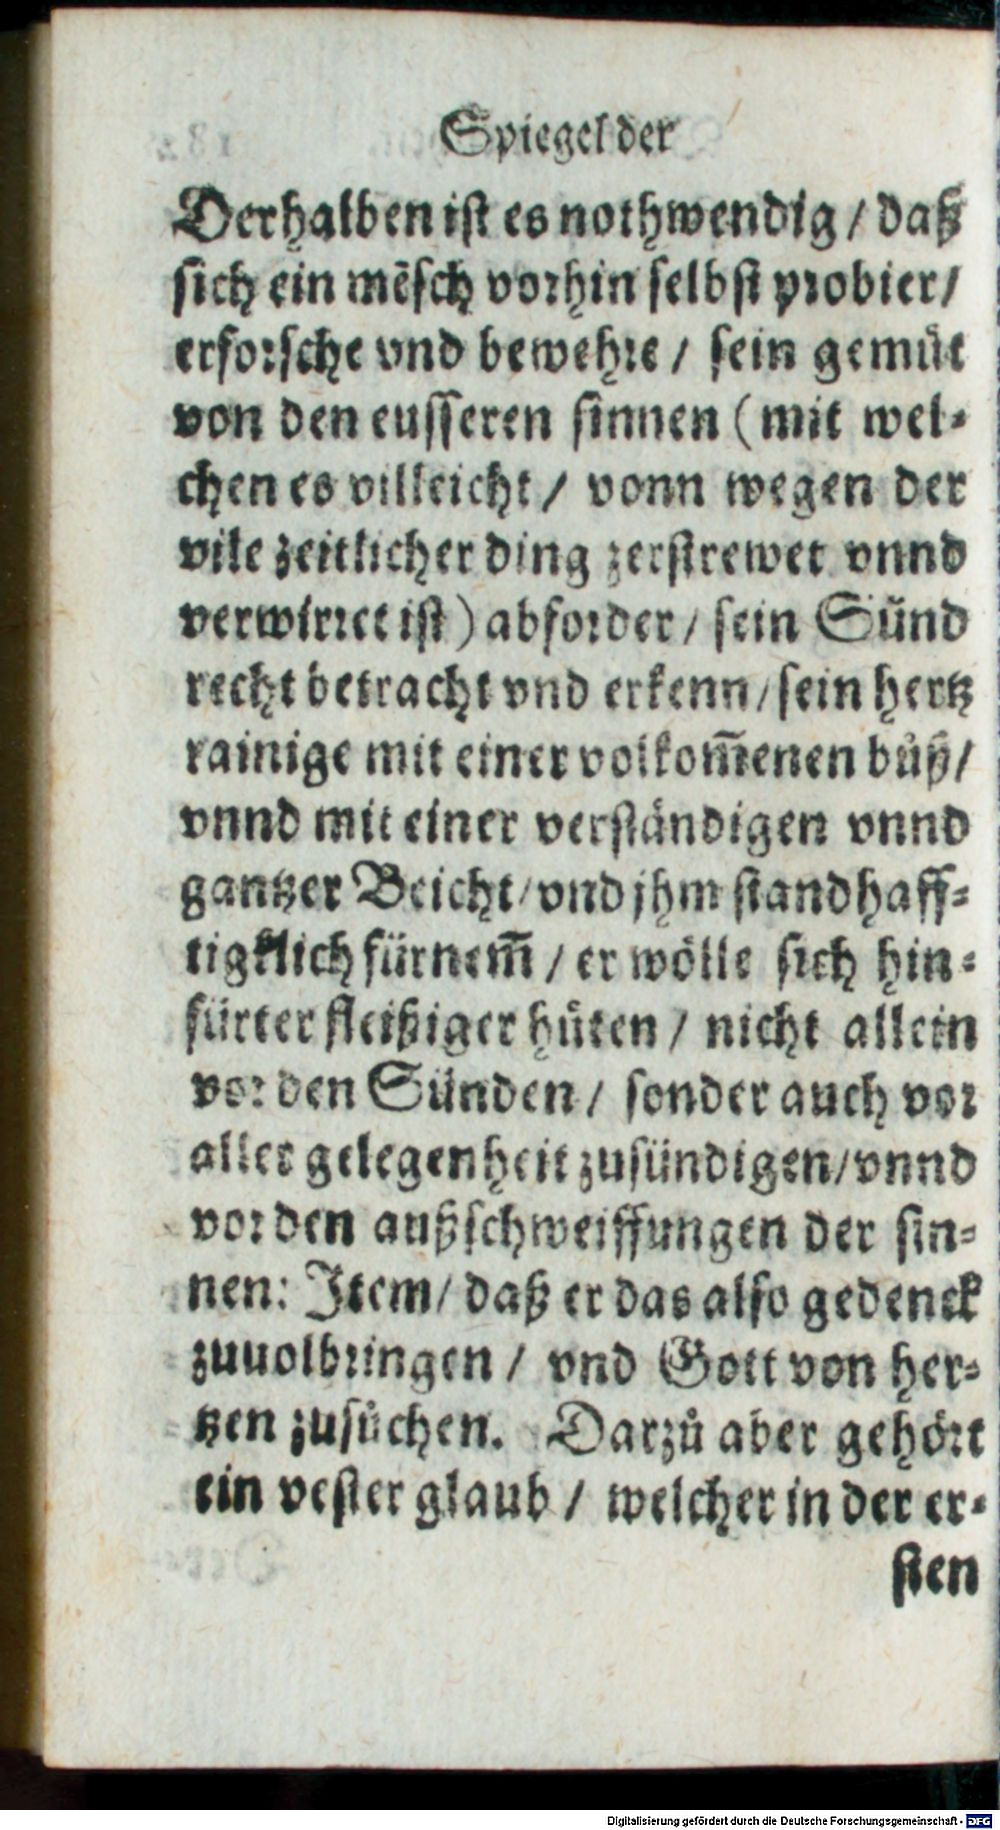 Spiegel der
Derhalben ist es nothwendig / daß
sich ein mẽsch vorhin selbst probier /
erforsche vnd bewehre / sein gemüt
von den eusseren sinnen (mit wel-
chen es villeicht / vonn wegen der
vile zeitlicher ding zerstrewet vnnd
verwirret ist) abforder / sein Sünd
recht betracht vnd erkenn / sein hertz
rainige mit einer volkom̃enen bůß /
vnnd mit einer verständigen vnnd
gantzer Beicht / vnd jhm standhaff-
tigklich fürnem̃ / er wölle sich hin-
fürter fleißiger hüten / nicht allein
vor den Sünden / sonder auch vor
aller gelegenheit zusündigen / vnnd
vor den außschweiffungen der sin-
nen: Item / daß er das also gedenck
zuuolbringen / vnd Gott von her-
tzen zusůchen. Darzů aber gehört
ein vester glaub / welcher in der er-
sten
Digitalisierung gefördert durch die Deutsche Forschungsgemeinschaft - DFG